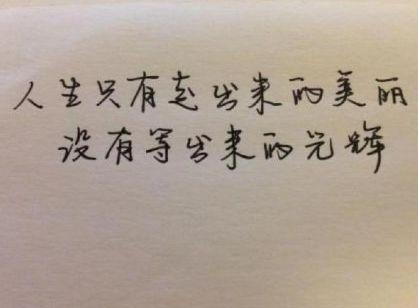 人生只有走出来的美丽
没有等出来的光辉